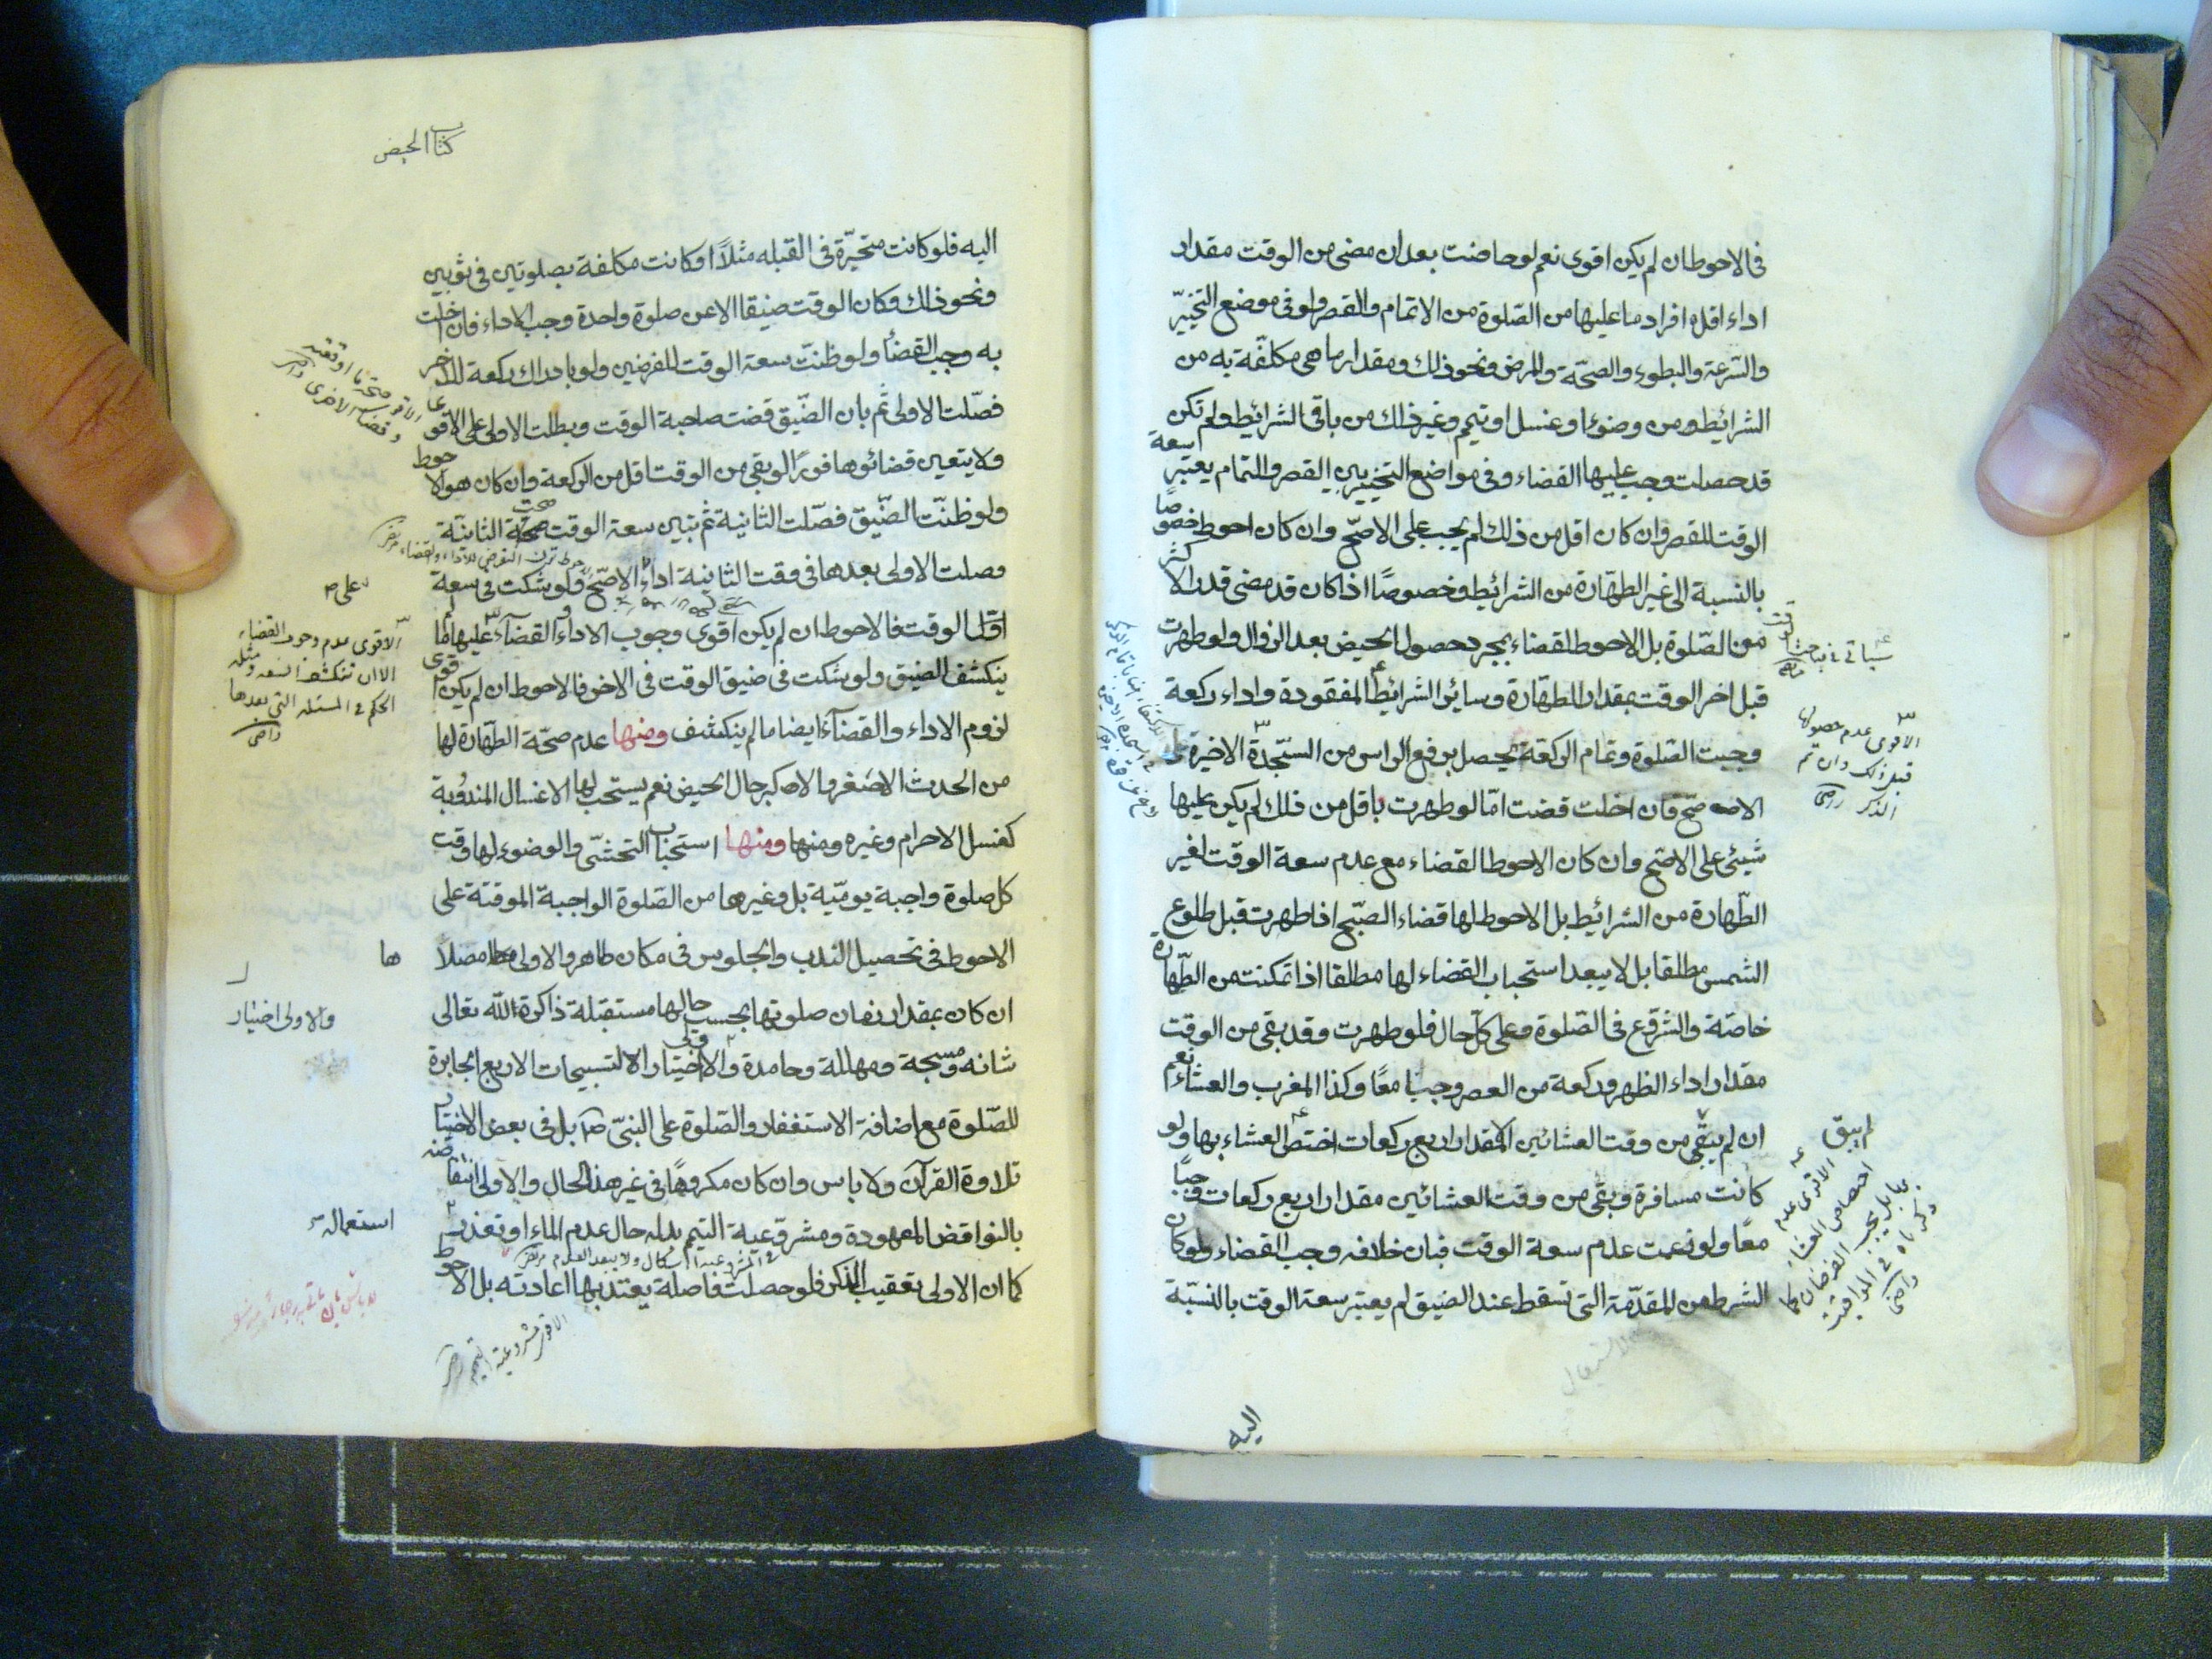 في الاحوط ان لم يكن اقوى نعم لو حاضت بعد ان مضى من الوقت مقدار
اداء اقل افراد ما عليها من الصّلوة من الاتمام والقصر ولو في موضع التخيّر
والسّرعة والبطوء والصحّة والمرض ونحو ذلك ومقدار ما هى مكلّفة به من
الشرائيط ومن وضوء او غسل او تيمم وغير ذلك من باقى الشرائيط ولم تكن
قد حصلت وجب عليها القضاء وفى مواضع التخيير بين القصر والتمام يعتبر سعة
الوقت للقصر وان كان اقل من ذلك لم يجب على الاصحّ وان كان احوط خصوصًا
بالنسبة الى غير الطهّارة من الشرائيط وخصوصًا اذا كان قد مضى قدر الاكثر
من الصّلوة بل الاحوط القضاء بمجرد حصول الحيض بعد الزوال ولو طهرت
قبل اخر الوقت بمقدار الطهّارة وسائر الشرائيط المفقودة واداء ركعة
وجبت الصّلوة وتمام الركعة يحصل برفع الراس من السّجدّة الاخيرة على
الاصحّ فان اخلت قضت امّا لو طهرت باقل من ذلك لم يكن عليها
شيئ على الاصّح وان كان الاحوط القضاء مع عدم سعة الوقت لغير
الطّهارة من الشرائيط بل الاحوط لها قضاء الصبّح اذا طهرت قبل طلوع
الشمس مطلقا بل لا يبعد استحباب القضاء لها مطلقا اذا تمكنت من الطّهارة
خاصّة والشرّوع فى الصّلوة وعلى كلّ حال فلو طهرت وقد بقى من الوقت
مقدار اداء الظهر وركعة من العصر وجبتا معًا وكذا المغرب والعشاء نعم
ان لم يبقى من وقت العشائين الا مقدار اربع ركعات اختص العشاء بها ولو
كانت مسافرة وبقى من وقت العشائين مقدار اربع ركعات وجبتا
معًا ولو زعمت عدم سعة الوقت فبان خلافه وجب القضاء ولو كان
الشرط من المقدّمة التى تسقط عند الضيق لم يعتبر سعة الوقت بالنسبّة
الاقوى عدم حصولها
قبل ذلك وان تم
الذكر
لم يبق
الاقوى عدم
اختصاص العشاء
بها بل يجب الفرضان كما
ذكرناه في المواقيت
اليه
كتاب الحيض
اليه فلو كانت متحيّرة فى القبله مثلاً او كانت مكلفة بصلوتين فى ثوبين
ونحو ذلك وكان الوقت ضيقا الا عن صلوة واحدة وجب الاداء فان اخلت
به وجب القضاء ولو ظنّت سعة الوقت للفرضين ولو بادراك ركعة للاخر
فصّلت الاولى ثم بان الضّيق قضت صاحبة الوقت وبطلت الاولى على الاقوى
ولا يتعين قضائوها فورًا لو بقى من الوقت اقل من الركعة وان كان هو الاحوط
ولو ظنّت الضّيق فصّلت الثانية ثم تبين سعة الوقت صحت الثانيّة
وصلت الاولى بعدها فى وقت الثانية اداء الاصّح ولو شكت فى سعة
اوّل الوقت فالاحوط ان لم يكن اقوى وجوب الاداء والقضاء عليها ما لم
ينكشف الضيق ولو شكت فى ضيق الوقت فى الاخر فالاحوط ان لم يكن اقوى
لزوم الاداء والقضآء ايضا ما لم ينكشف ومنها عدم صحّة الطهّارة لها
من الحدث الاصغر والاكبر حال الحيض نعم يستحب لها الاغسال المندوبة
كغسل الاحرام وغيره ومنها ومنها استحباب التحشّى والوضوء لها وقت
كل صلوة واجبة يوميّة بل وغيرها من الصّلوة الواجبة الموقتة على
الاحوط فى تحصيل الندب والجلوس فى مكان طاهر والاولى مصلا ها
ان كان بمقدار زمان صلوتها بحسب حالها مستقبلة ذاكرة الله تعالى
شانه ومسبحة ومهللة وحامدة والاولى اختيار الالتسبيحات الاربع الجابرة
للصّلوة مع اضافة الاستغفار والصّلوة على النبىّ ص بل فى بعض الاخبار
تلاوة القرآن ولا باس وان كان مكروهًا فى غير هذا الحال والاولى انتقاضه
بالنواقض المعهودة ومشروعية التيمم بدله حال عدم الماء او تعذر استعماله
كما ان الاولى تعقيب الذكر فلو حصلت فاصلة يعتد بها اعادته بل الاحوط
الاقوى صحة ما اوقعته
الاقوى عدم وجوب القضاء
الا ان تنكشف السعة ومثله
الحكم فى المسئلة التى بعدها
والاولى اختيار
فى المشروعية اشكال ولا يبعد العدم
الاقوى مشروعية التيمم